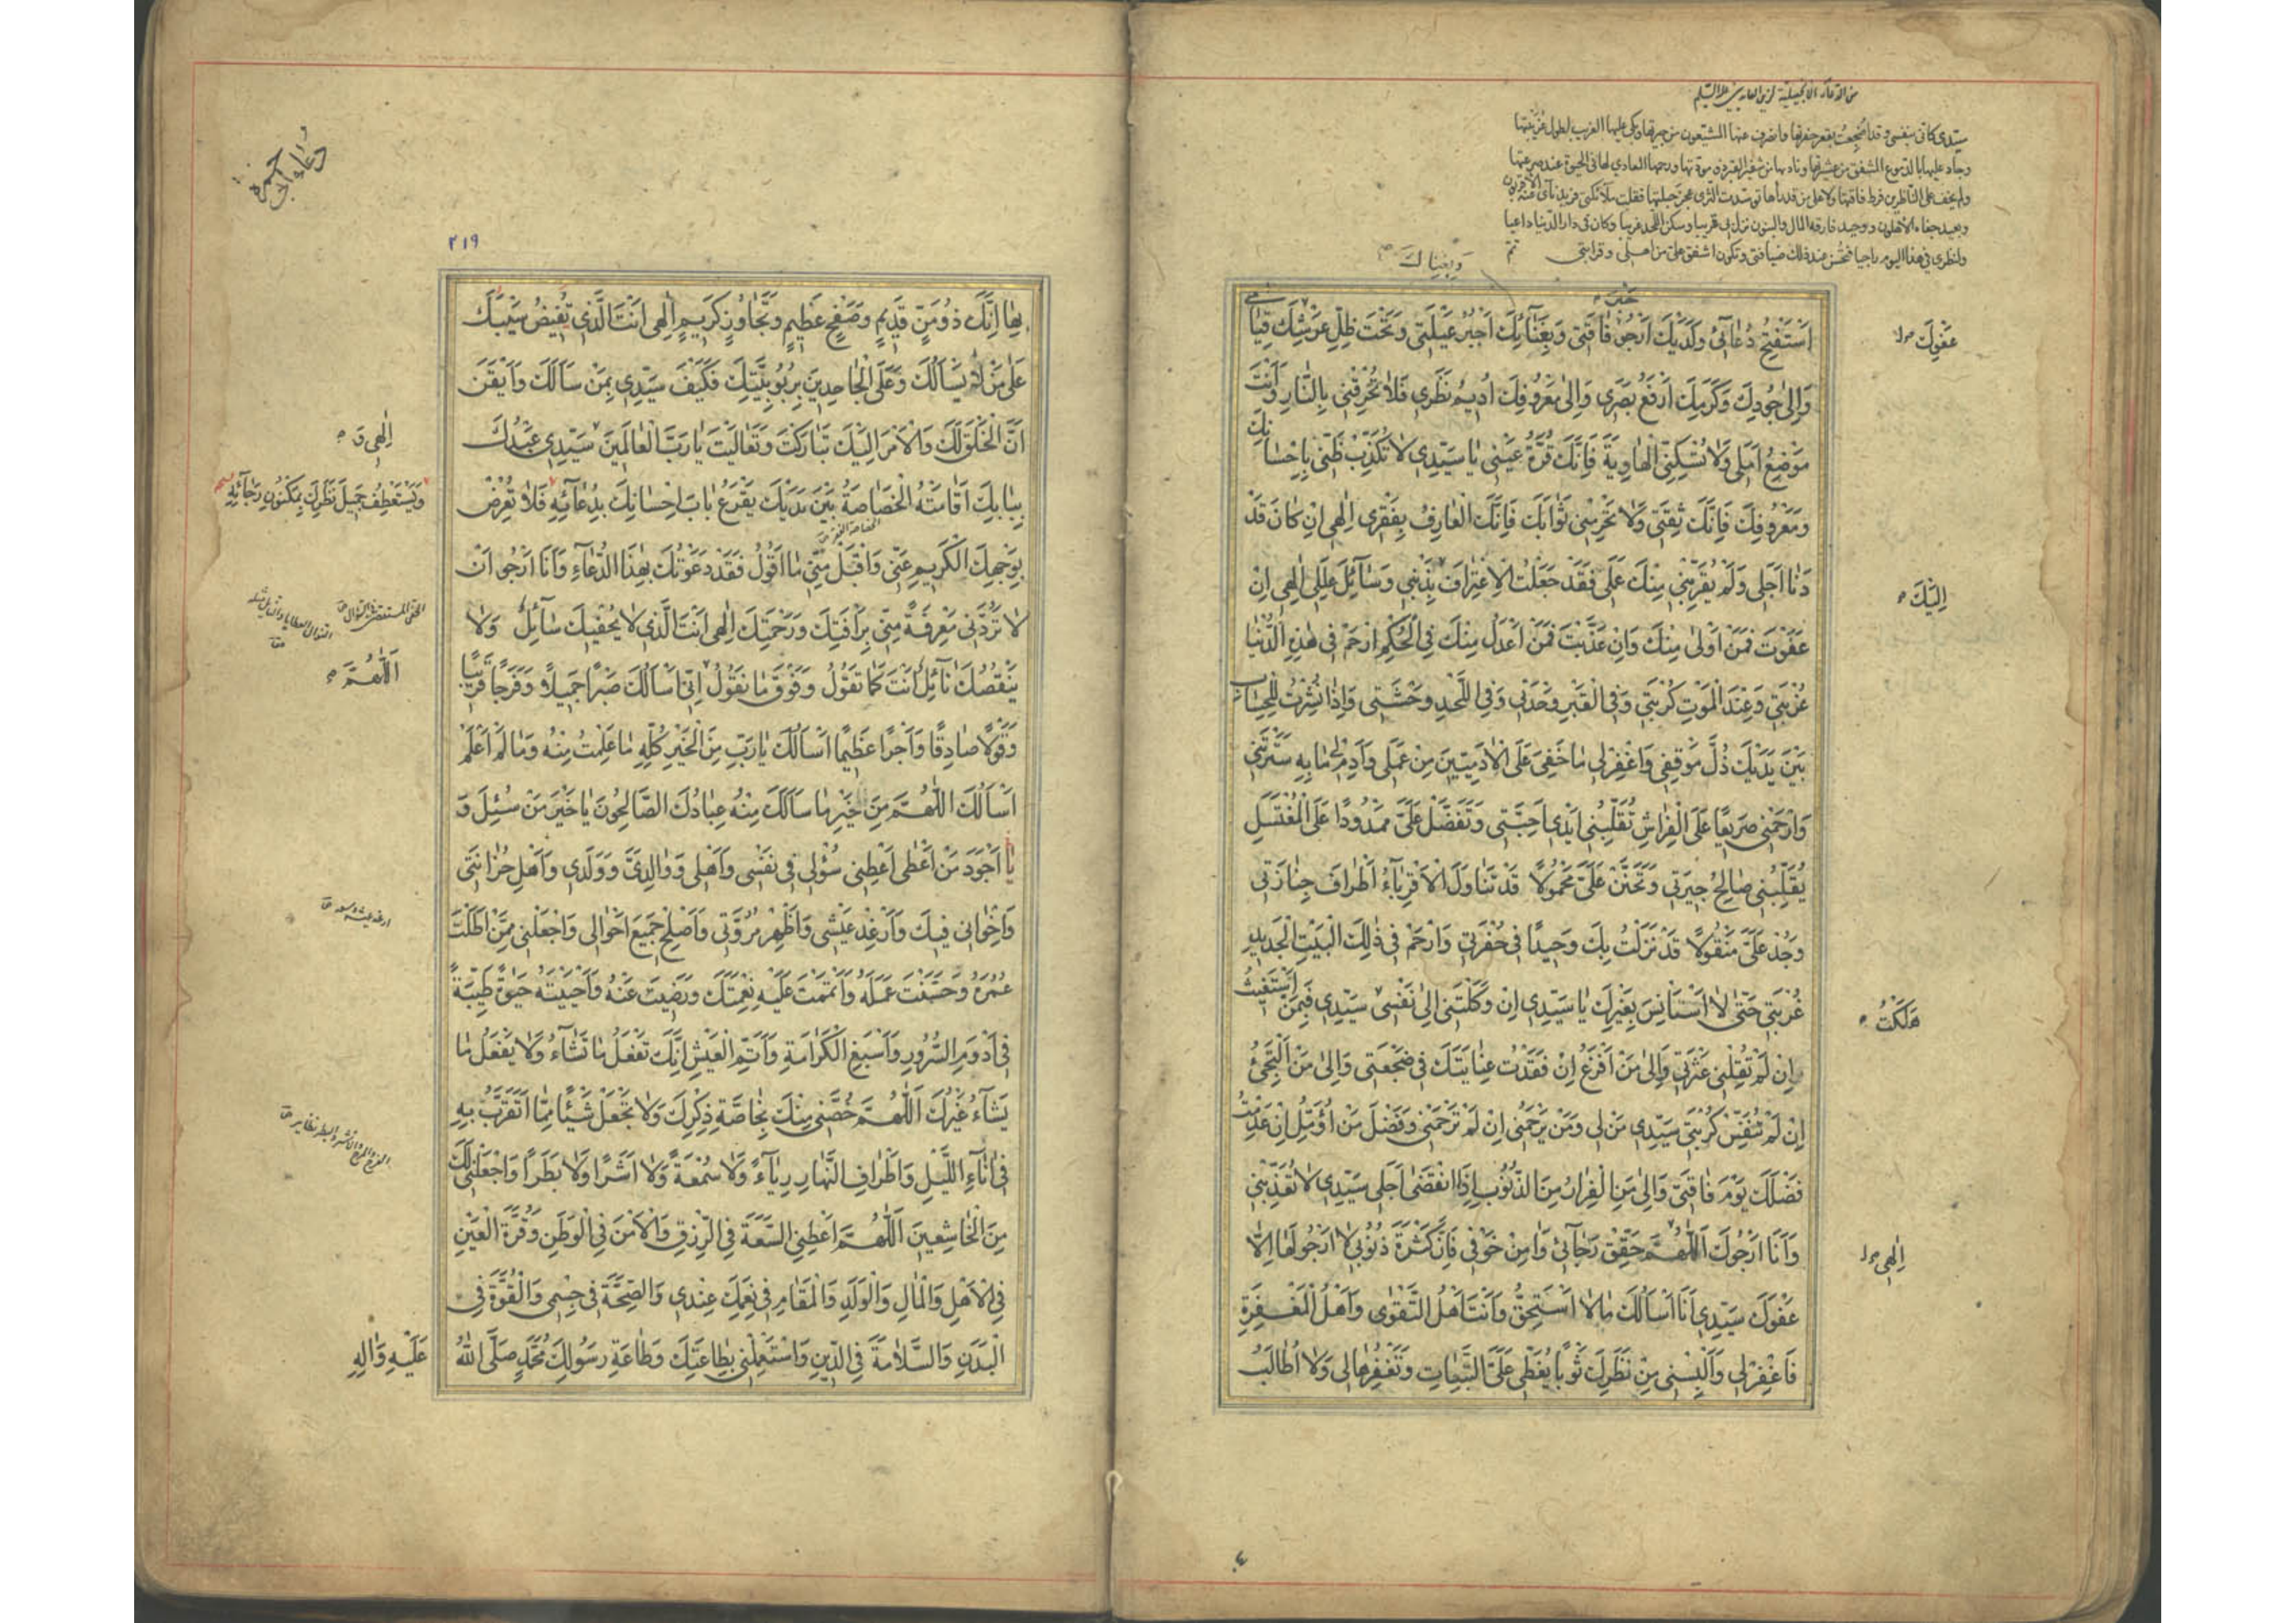 من الادعية الانجيلية لزين العابدين عليه السلام
سيدي كاني بنفسي وقد اضجعت بقعر حفرتها وانصرف عنها المشيعون من جيرتها وبكى عليها الغريب لطول غربتها
وجاد عليها بالدموع المشفق من عشيرتها وناداها من شفير القبر ذوو مودتها ورحمها المعادي لها في الحيوة عند صرعتها
ولم يخف على الناظرين فرط فاقتها ولا على من قد رآها توسدت الثرى عجز حيلتها فقلت ملائكتي فريد نآى عنه الاقربون
وبعيد جفاه الاهلون ووحيد فارقه المال والبنون نزل بي قريبا وسكن اللحد غريبا وكان في دار الدنيا داعيا
ولنظري في هذا اليوم راجيا فتحسن عند ذلك ضيافتي وتكون اشفق علي من اهلي وقرابتي
وبغناك
اَسْتَفْتِحُ دُعائي وَلَدَيْكَ اَرْجُو فاقَتي وَبِغِنائِكَ اَجْبُرُ عَيْلَتي وَتَحْتَ ظِلِّ عَرْشِكَ قِيامي
عَفْوِكَ
وَاِلى جُودِكَ وَكَرَمِكَ اَرْفَعُ بَصَري وَاِلى مَعْرُوفِكَ اُديمُ نَظَري فَلا تُحْرِقْني بِالنّارِ وَاَنْتَ
مَوْضِعُ اَمَلي وَلا تُسْكِنِّي الْهاوِيَةَ فَاِنَّكَ قُرَّةُ عَيْني يا سَيِّدي لا تُكَذِّبْ ظَنّي بِاِحْسانِكَ
وَمَعْرُوفِكَ فَاِنَّكَ ثِقَتي وَلا تَحْرِمْني ثَوابَكَ فَاِنَّكَ الْعارِفُ بِفَقْري اِلهي اِنْ كانَ قَدْ
دَنا اَجَلي وَلَمْ يُقَرِّبْني مِنْكَ عَمَلي فَقَدْ جَعَلْتُ الْاِعْتِرافَ بِذَنْبي وَسائِلَ عِلَلي اِلهي اِنْ
اِلَيْكَ
عَفَوْتَ فَمَنْ اَوْلى مِنْكَ وَاِنْ عَذَّبْتَ فَمَنْ اَعْدَلُ مِنْكَ فِي الْحُكْمِ ارْحَمْ في هذِهِ الدُّنْيا
غُرْبَتي وَعِنْدَ الْمَوْتِ كُرْبَتي وَفِي الْقَبْرِ وَحْدَتي وَفِي اللَّحْدِ وَحْشَتي وَاِذا نُشِرْتُ لِلْحِسابِ
بَيْنَ يَدَيْكَ ذُلَّ مَوْقِفي وَاغْفِرْ لي ما خَفِيَ عَلَى الْادَمِيّينَ مِنْ عَمَلي وَاَدِمْ لي ما بِهِ سَتَرْتَني
وَارْحَمْني صَريعًا عَلَى الْفِراشِ تُقَلِّبُني اَيْدي اَحِبَّتي وَتَفَضَّلْ عَلَيَّ مَمْدُودًا عَلَى الْمُغْتَسَلِ
يُقَلِّبُني صالِحُ جيرَتي وَتَحَنَّنْ عَلَيَّ مَحْمُولًا قَدْ تَناوَلَ الْاَقْرِباءُ اَطْرافَ جِنازَتي
وَجُدْ عَلَيَّ مَنْقُولًا قَدْ نَزَلْتُ بِكَ وَحيدًا في حُفْرَتي وَارْحَمْ في ذلِكَ الْبَيْتِ الْجَديدِ
غُرْبَتي حَتّى لا اَسْتَانِسَ بِغَيْرِكَ يا سَيِّدي اِنْ وَكَلْتَني اِلى نَفْسي سَيِّدي فَبِمَنْ اَسْتَغيثُ
هَلَكْتُ
اِنْ لَمْ تُقِلْني عَثْرَتي وَاِلى مَنْ اَفْزَعُ اِنْ فَقَدْتُ عِنايَتَكَ في ضَجْعَتي وَاِلى مَنْ اَلْتَجِئُ
اِنْ لَمْ تُنَفِّسْ كُرْبَتي سَيِّدي مَنْ لي وَمَنْ يَرْحَمُني اِنْ لَمْ تَرْحَمْني وَفَضْلَ مَنْ اُؤَمِّلُ اِنْ عَدِمْتُ
فَضْلَكَ يَوْمَ فاقَتي وَاِلى مَنِ الْفِرارُ مِنَ الذُّنُوبِ اِذَا انْقَضى اَجَلي سَيِّدي لا تُعَذِّبْني
وَاَنَا اَرْجُوكَ اَللّهُمَّ حَقِّقْ رَجائي وَامِنْ خَوْفي فَاِنَّ كَثْرَةَ ذُنُوبي لا اَرْجُو لَها اِلّا
اِلهي
عَفْوَكَ سَيِّدي اَنَا اَسْاَلُكَ ما لا اَسْتَحِقُّ وَاَنْتَ اَهْلُ التَّقْوى وَاَهْلُ الْمَغْفِرَةِ
فَاغْفِرْ لي وَاَلْبِسْني مِنْ نَظَرِكَ ثَوْبًا يُغَطّي عَلَيَّ التَّبِعاتِ وَتَغْفِرُها لي وَلا اُطالَبُ
دعاء ابي حمزه
٢١٩
بِها اِنَّكَ ذُو مَنٍّ قَديمٍ وَصَفْحٍ عَظيمٍ وَتَجاوُزٍ كَريمٍ اِلهي اَنْتَ الَّذي تُفيضُ سَيْبَكَ
عَلى مَنْ لا يَسْاَلُكَ وَعَلَى الْجاحِدينَ بِرُبُوبِيَّتِكَ فَكَيْفَ سَيِّدي بِمَنْ سَاَلَكَ وَاَيْقَنَ
اَنَّ الْخَلْقَ لَكَ وَالْاَمْرَ اِلَيْكَ تَبارَكْتَ وَتَعالَيْتَ يا رَبَّ الْعالَمينَ سَيِّدي عَبْدُكَ
اِلهي وَ
بِبابِكَ اَقامَتْهُ الْخَصاصَةُ بَيْنَ يَدَيْكَ يَقْرَعُ بابَ اِحْسانِكَ بِدُعائِهِ فَلا تُعْرِضْ
وَيَسْتَعْطِفُ جَميلَ نَظَرِكَ بِمَكْنُونِ رَجائِهِ
بِوَجْهِكَ الْكَريمِ عَنّي وَاقْبَلْ مِنّي ما اَقُولُ فَقَدْ دَعَوْتُكَ بِهذَا الدُّعاءِ وَاَنَا اَرْجُو اَنْ
لا تَرُدَّني مَعْرِفَةً مِنّي بِرَاْفَتِكَ وَرَحْمَتِكَ اِلهي اَنْتَ الَّذي لا يُحْفيكَ سائِلٌ وَلا
يَنْقُصُكَ نائِلٌ اَنْتَ كَما تَقُولُ وَفَوْقَ ما نَقُولُ اِنّي اَسْاَلُكَ صَبْرًا جَميلًا وَفَرَجًا قَريبًا
اَللّهُمَّ
وَقَوْلًا صادِقًا وَاَجْرًا عَظيمًا اَسْاَلُكَ يا رَبِّ مِنَ الْخَيْرِ كُلِّهِ ما عَلِمْتُ مِنْهُ وَما لَمْ اَعْلَمْ
اَسْاَلُكَ اللّهُمَّ مِنْ خَيْرِ ما سَاَلَكَ مِنْهُ عِبادُكَ الصّالِحُونَ يا خَيْرَ مَنْ سُئِلَ وَ
يا اَجْوَدَ مَنْ اَعْطى اَعْطِني سُؤْلي في نَفْسي وَاَهْلي وَوالِدَيَّ وَوَلَدي وَاَهْلِ حُزانَتي
وَاِخْواني فيكَ وَاَرْغِدْ عَيْشي وَاَظْهِرْ مُرُوَّتي وَاَصْلِحْ جَميعَ اَحْوالي وَاجْعَلْني مِمَّنْ اَطَلْتَ
عُمْرَهُ وَحَسَّنْتَ عَمَلَهُ وَاَتْمَمْتَ عَلَيْهِ نِعْمَتَكَ وَرَضيتَ عَنْهُ وَاَحْيَيْتَهُ حَيوةً طَيِّبَةً
في اَدْوَمِ السُّرُورِ وَاَسْبَغِ الْكَرامَةِ وَاَتَمِّ الْعَيْشِ اِنَّكَ تَفْعَلُ ما تَشاءُ وَلا يَفْعَلُ ما
يَشاءُ غَيْرُكَ اَللّهُمَّ خُصَّني مِنْكَ بِخاصَّةِ ذِكْرِكَ وَلا تَجْعَلْ شَيْئًا مِمّا اَتَقَرَّبُ بِهِ
في اناءِ اللَّيْلِ وَاَطْرافِ النَّهارِ رِياءً وَلا سُمْعَةً وَلا اَشَرًا وَلا بَطَرًا وَاجْعَلْني لَكَ
مِنَ الْخاشِعينَ اَللّهُمَّ اَعْطِنِي السَّعَةَ فِي الرِّزْقِ وَالْاَمْنَ فِي الْوَطَنِ وَقُرَّةَ الْعَيْنِ
فِي الْاَهْلِ وَالْمالِ وَالْوَلَدِ وَالْمَقامِ في نِعَمِكَ عِنْدي وَالصِّحَّةَ في جِسْمي وَالْقُوَّةَ في
الْبَدَنِ وَالسَّلامَةَ فِي الدّينِ وَاسْتَعْمِلْني بِطاعَتِكَ وَطاعَةِ رَسُولِكَ مُحَمَّدٍ صَلَّى اللهُ
عَلَيْهِ وَالِهِ